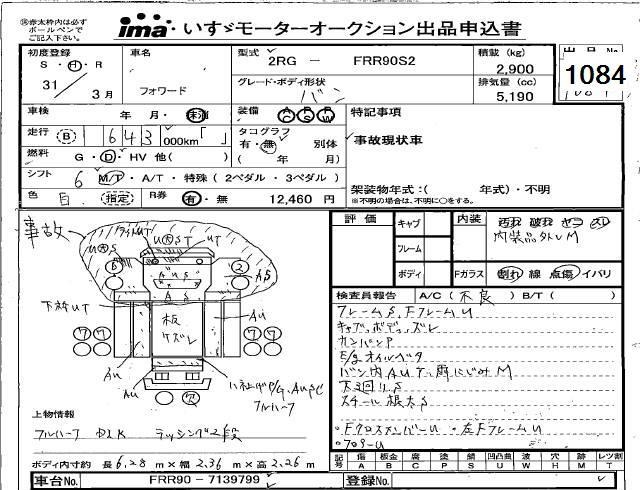 ※赤太枠内は必ず
ボールペンで
ご記入下さい。
ima いすゞモーターオークション出品申込書
初度登録
S ・ H ・ R
31 / 3月
車名
フォワード
型式
2RG － FRR90S2
グレード・ボディ形状
バン
積載 (kg)
2,900
排気量 (cc)
5,190
出品No
1084
車検 年 ・ 月 ・ 未消
装備 AC PS PW
走行 B 1 643 000km「 」
タコグラフ
有・無 別体
( 年 月)
燃料 G ・ D ・ HV 他( )
シフト 6 M/T ・ A/T ・ 特殊 ( 2ペダル ・ 3ペダル )
色 白 (指定) R券 有 ・ 無 12,460 円
特記事項
事故現状車
架装物年式：( 年式) ・不明
※不明の場合は、不明に○をする。
事故
下枠UT
板
ケズレ
Au
Au
Au
フルハーフ
上物情報
フルハーフ D1K ラッシング2段
ボディ内寸約 長 6.28 m × 幅 2.36 m × 高 2.26 m
評 価
キャブ
フレーム
ボディ
内装 汚れ 破れ
内装品外しM
Fガラス 割れ 線 点傷 イバリ
検査員報告 A/C ( 不良 ) B/T ( )
フレームS,FフレームU
キャブ,ボディ,ズレ
カンバンP
E/gオイルベタ
下廻りS
スチール根太S
・FクロスメンバーU ・左FフレームU
・フロアーU
記号 傷 A 板金 B 腐 C 塗 P 錆 S 凹凸曲 U 波 W 穴 H 跡 M レツ割 T
車台No. FRR90 － 7139799
登録No.